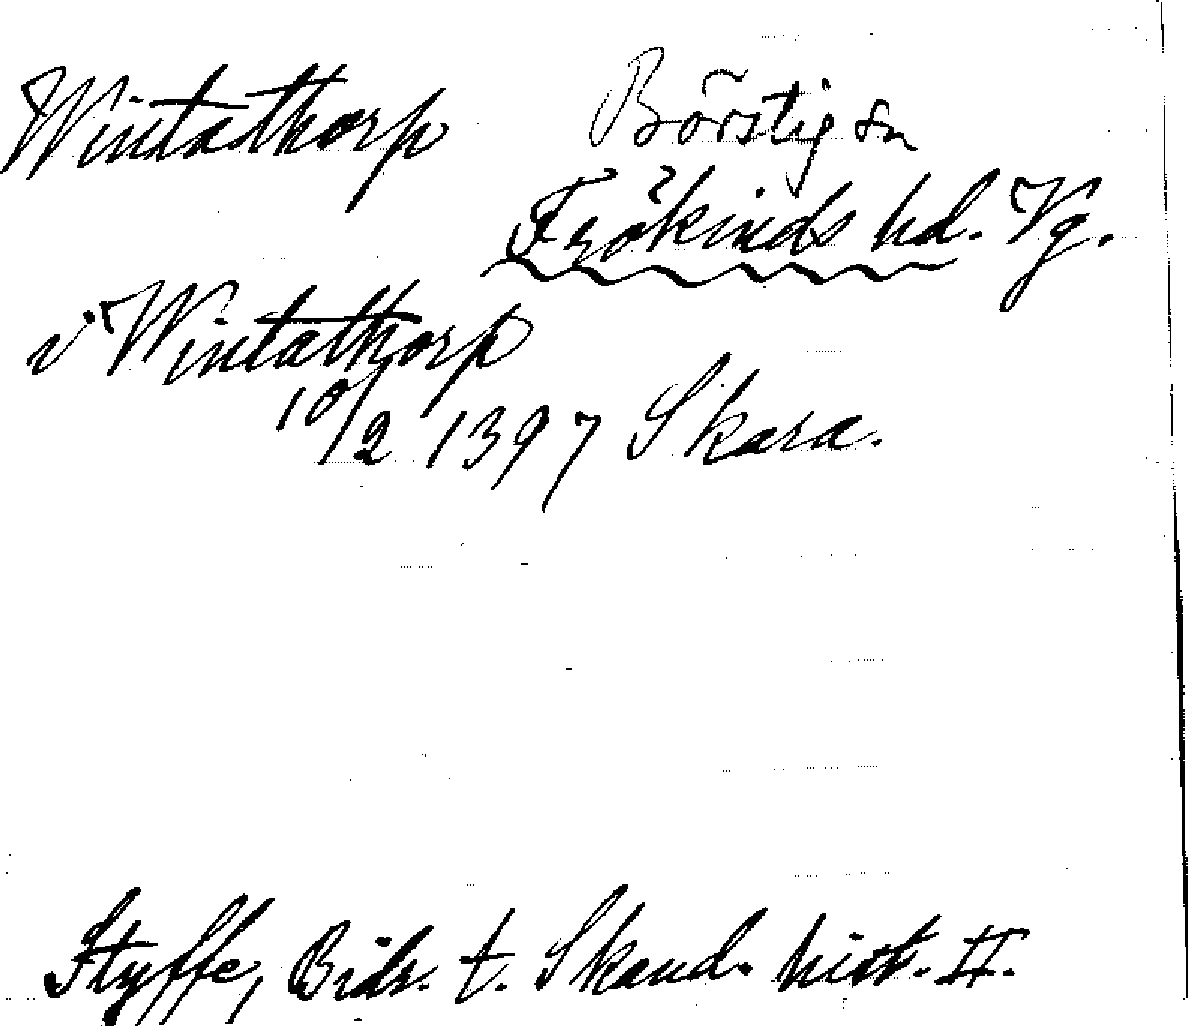 Wintathorp Börstig sn
Frökinds hd. Vg.
i Wintathorp
10/2 1397 Skara.
Styffe, Bidr. t. Skand. hist. II.